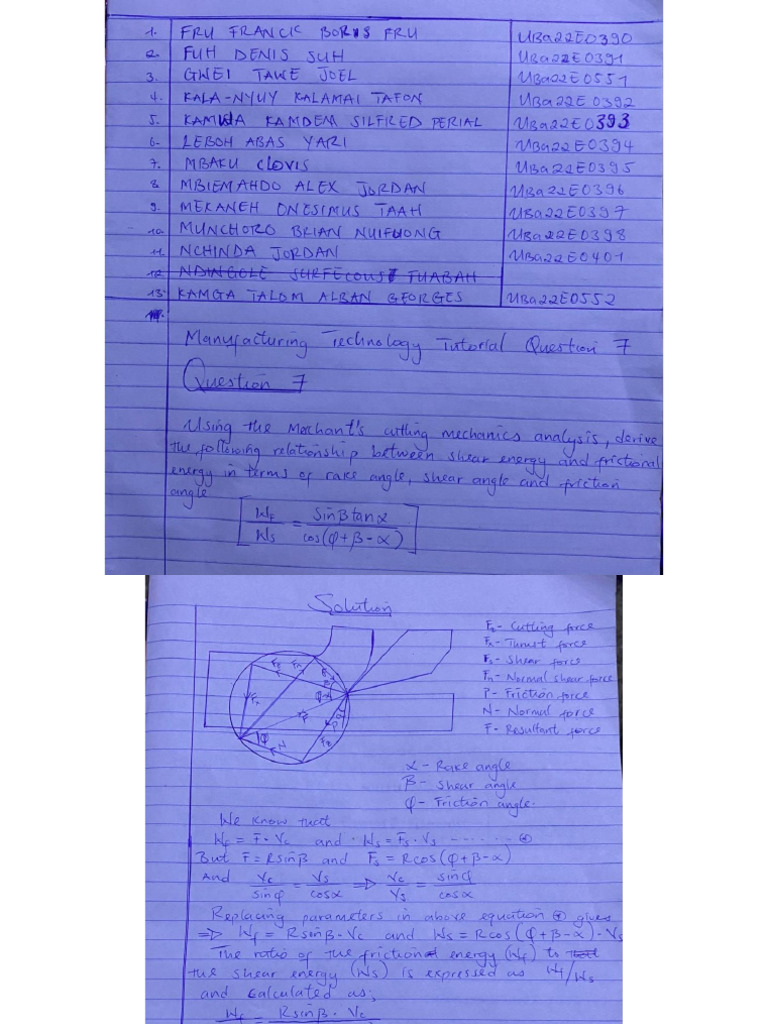 1. FRU FRANCK BORIS FRU UBa22E0390
2. FUH DENIS SUH UBa22E0391
3. GWEI TAWE JOEL UBa22E0551
4. KALA-NYUY KALAMAI TAFON UBa22E0392
5. KAMWA KAMDEM SILFRED PERIAL UBa22E0393
6. LEBOH ABAS YARI UBa22E0394
7. MBAKU CLOVIS UBa22E0395
8. MBIEMAHDO ALEX JORDAN UBa22E0396
9. MEKANEH ONESIMUS TAAH UBa22E0397
10. MUNCHORO BRIAN NUIFUONG UBa22E0398
11. NCHINDA JORDAN UBa22E0401
12. FUABAH
13. KAMGA TALOM ALBAN GEORGES UBa22E0552
Manufacturing Technology Tutorial Question 7
Question 7
Using the Merchant's cutting mechanics analysis, derive
the following relationship between shear energy and frictional
energy in terms of rake angle, shear angle and friction
angle
WF/WS = SinBtanα/cos(φ+β-α)
Solution
- Cutting force
- Thrust force
Fs - Shear force
Fn - Normal shear force
P - Friction force
N - Normal force
F - Resultant force
α - Rake angle
β - Shear angle
φ - Friction angle.
We know that
Wf = F·Vc and Ws = Fs·Vs
But F = Rsinβ and Fs = Rcos(φ+β-α)
And Vc/sinφ = Vs/cosα ⇒ Vc/Vs = sinφ/cosα
Replacing parameters in above equation gives
⇒ Wf = Rsinβ·Vc and Ws = Rcos(φ+β-α)·Vs
The ratio of the friction energy (Wf) to
the shear energy (Ws) is expressed as Wf/Ws
and calculated as;
Wf = Rsinβ·Vc